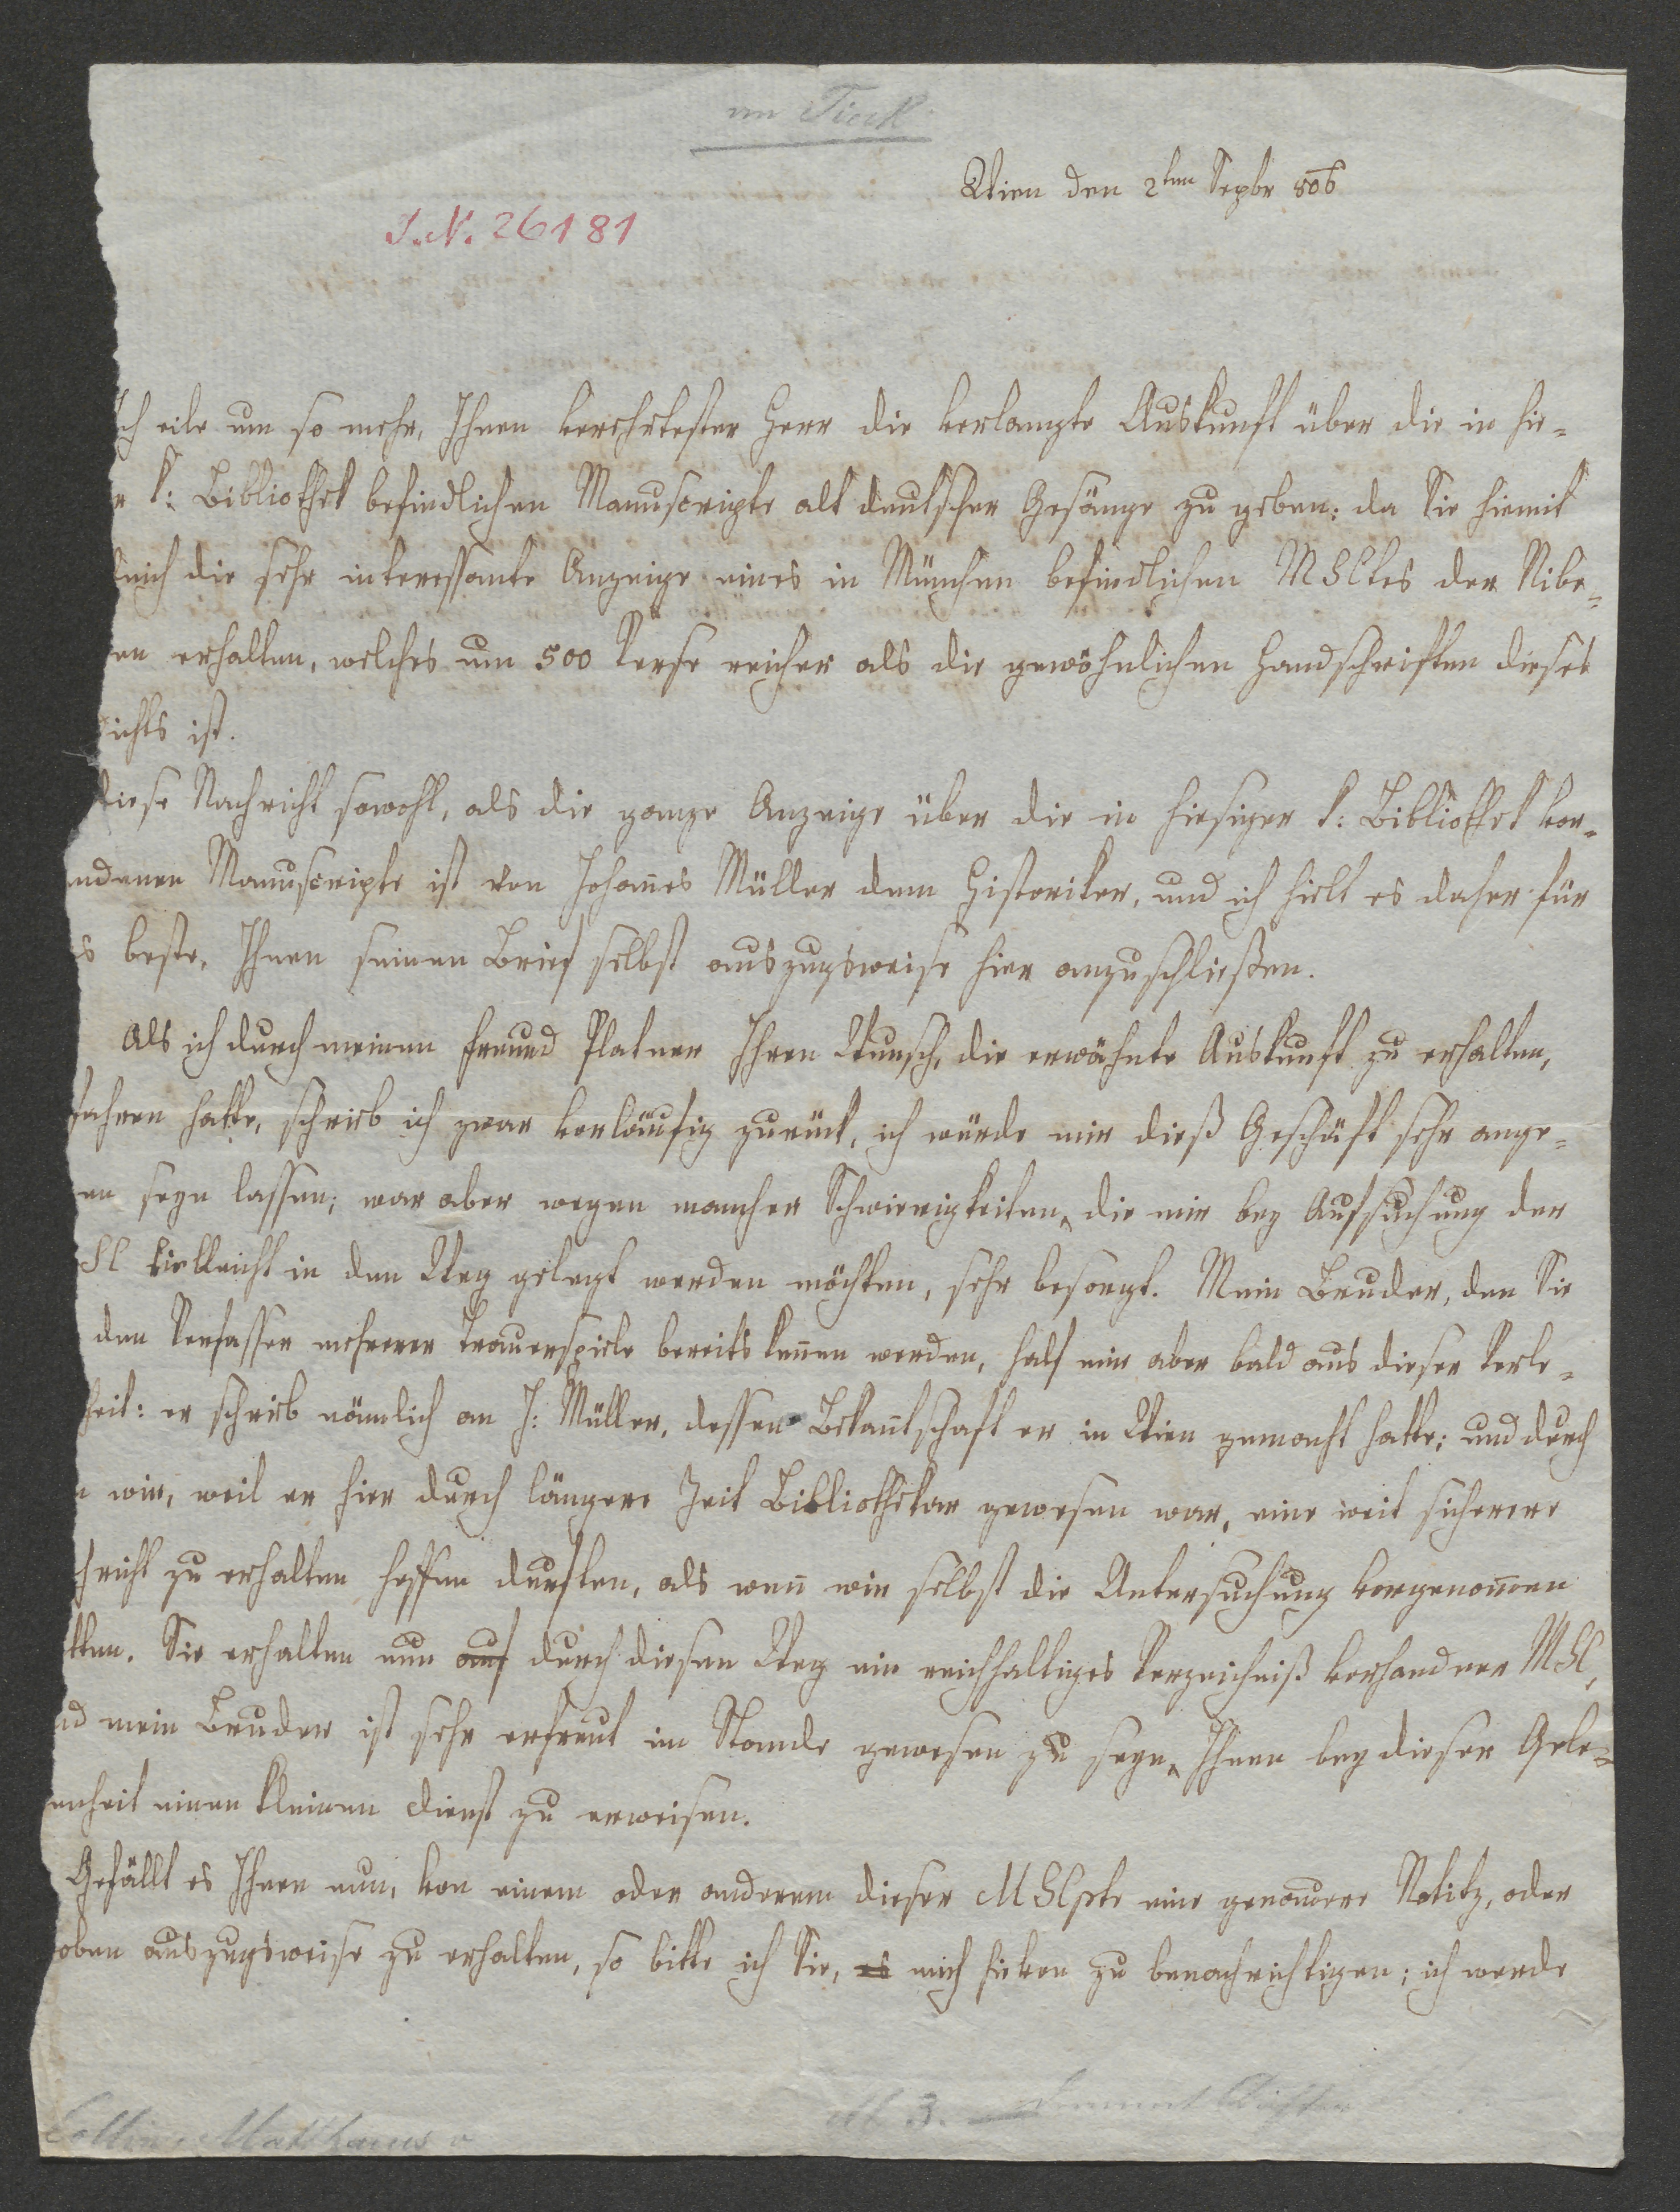 an Tieck
Wien den 2ten Sepbr 806
J.N. 26181
Ich eile um so mehr, Ihnen verehrtester Herr die verlangte Auskunft über die in hie-
r k: Bibliothek befindlichen Manuscripte alt deutscher Gesänge zu geben: da Sie hiemit
nich die sehr interessante Anzeige eines in München befindlichen MSCtes der Nibe-
en erhalten, welches um 500 Verse reicher als die gewöhnlichen Handschriften dieses
ichts ist.
diese Nachricht sowohl, als die ganze Anzeige über die in hiesiger k: Bibliothek vor-
andenen Manuscripte ist von Johañes Müller dem Historiker, und ich hielt es daher für
s beste, Ihnen seinen Brief selbst auszugsweise hier anzuschließen.
Als ich durch meinen Freund Platner Ihren Wunsch, die erwähnte Auskunft zu erhalten,
fahren hatte, schrieb ich zwar vorläufig zurück, ich würde mir dieß Geschäft sehr ange-
en seyn lassen; war aber wegen mancher Schwierigkeiten, die mir bey Aufsuchung der
SC vielleicht in den Weg gelegt werden möchten, sehr besorgt. Mein Bruder, den Sie
den Verfasser mehrerer Trauerspiele bereits keñen werden, half mir aber bald aus dieser Verle-
heit: er schrieb nämlich an J: Müller, dessen Bekañtschaft er in Wien gemacht hatte; und durch
n wir, weil er hier durch längere Zeit Bibliothekar gewesen war, eine weit sicherere
hricht zu erhalten hoffen durften, als weñ wir selbst die Untersuchung vorgenom̄en
tten. Sie erhalten nun auf durch diesen Weg ein reichhaltiges Verzeichniß vorhandner MSC,
nd mein Bruder ist sehr erfreut im Stande gewesen zu seyn, Ihnen bey dieser Gele-
enheit einen kleinen Dienst zu erweisen.
Gefällt es Ihnen nun, von einem oder anderem dieser MSCpte eine genauere Notitz, oder
oben auszugsweise zu erhalten, so bitte ich Sie, es mich hievon zu benachrichtigen; ich werde
Collin, Matthaeus v